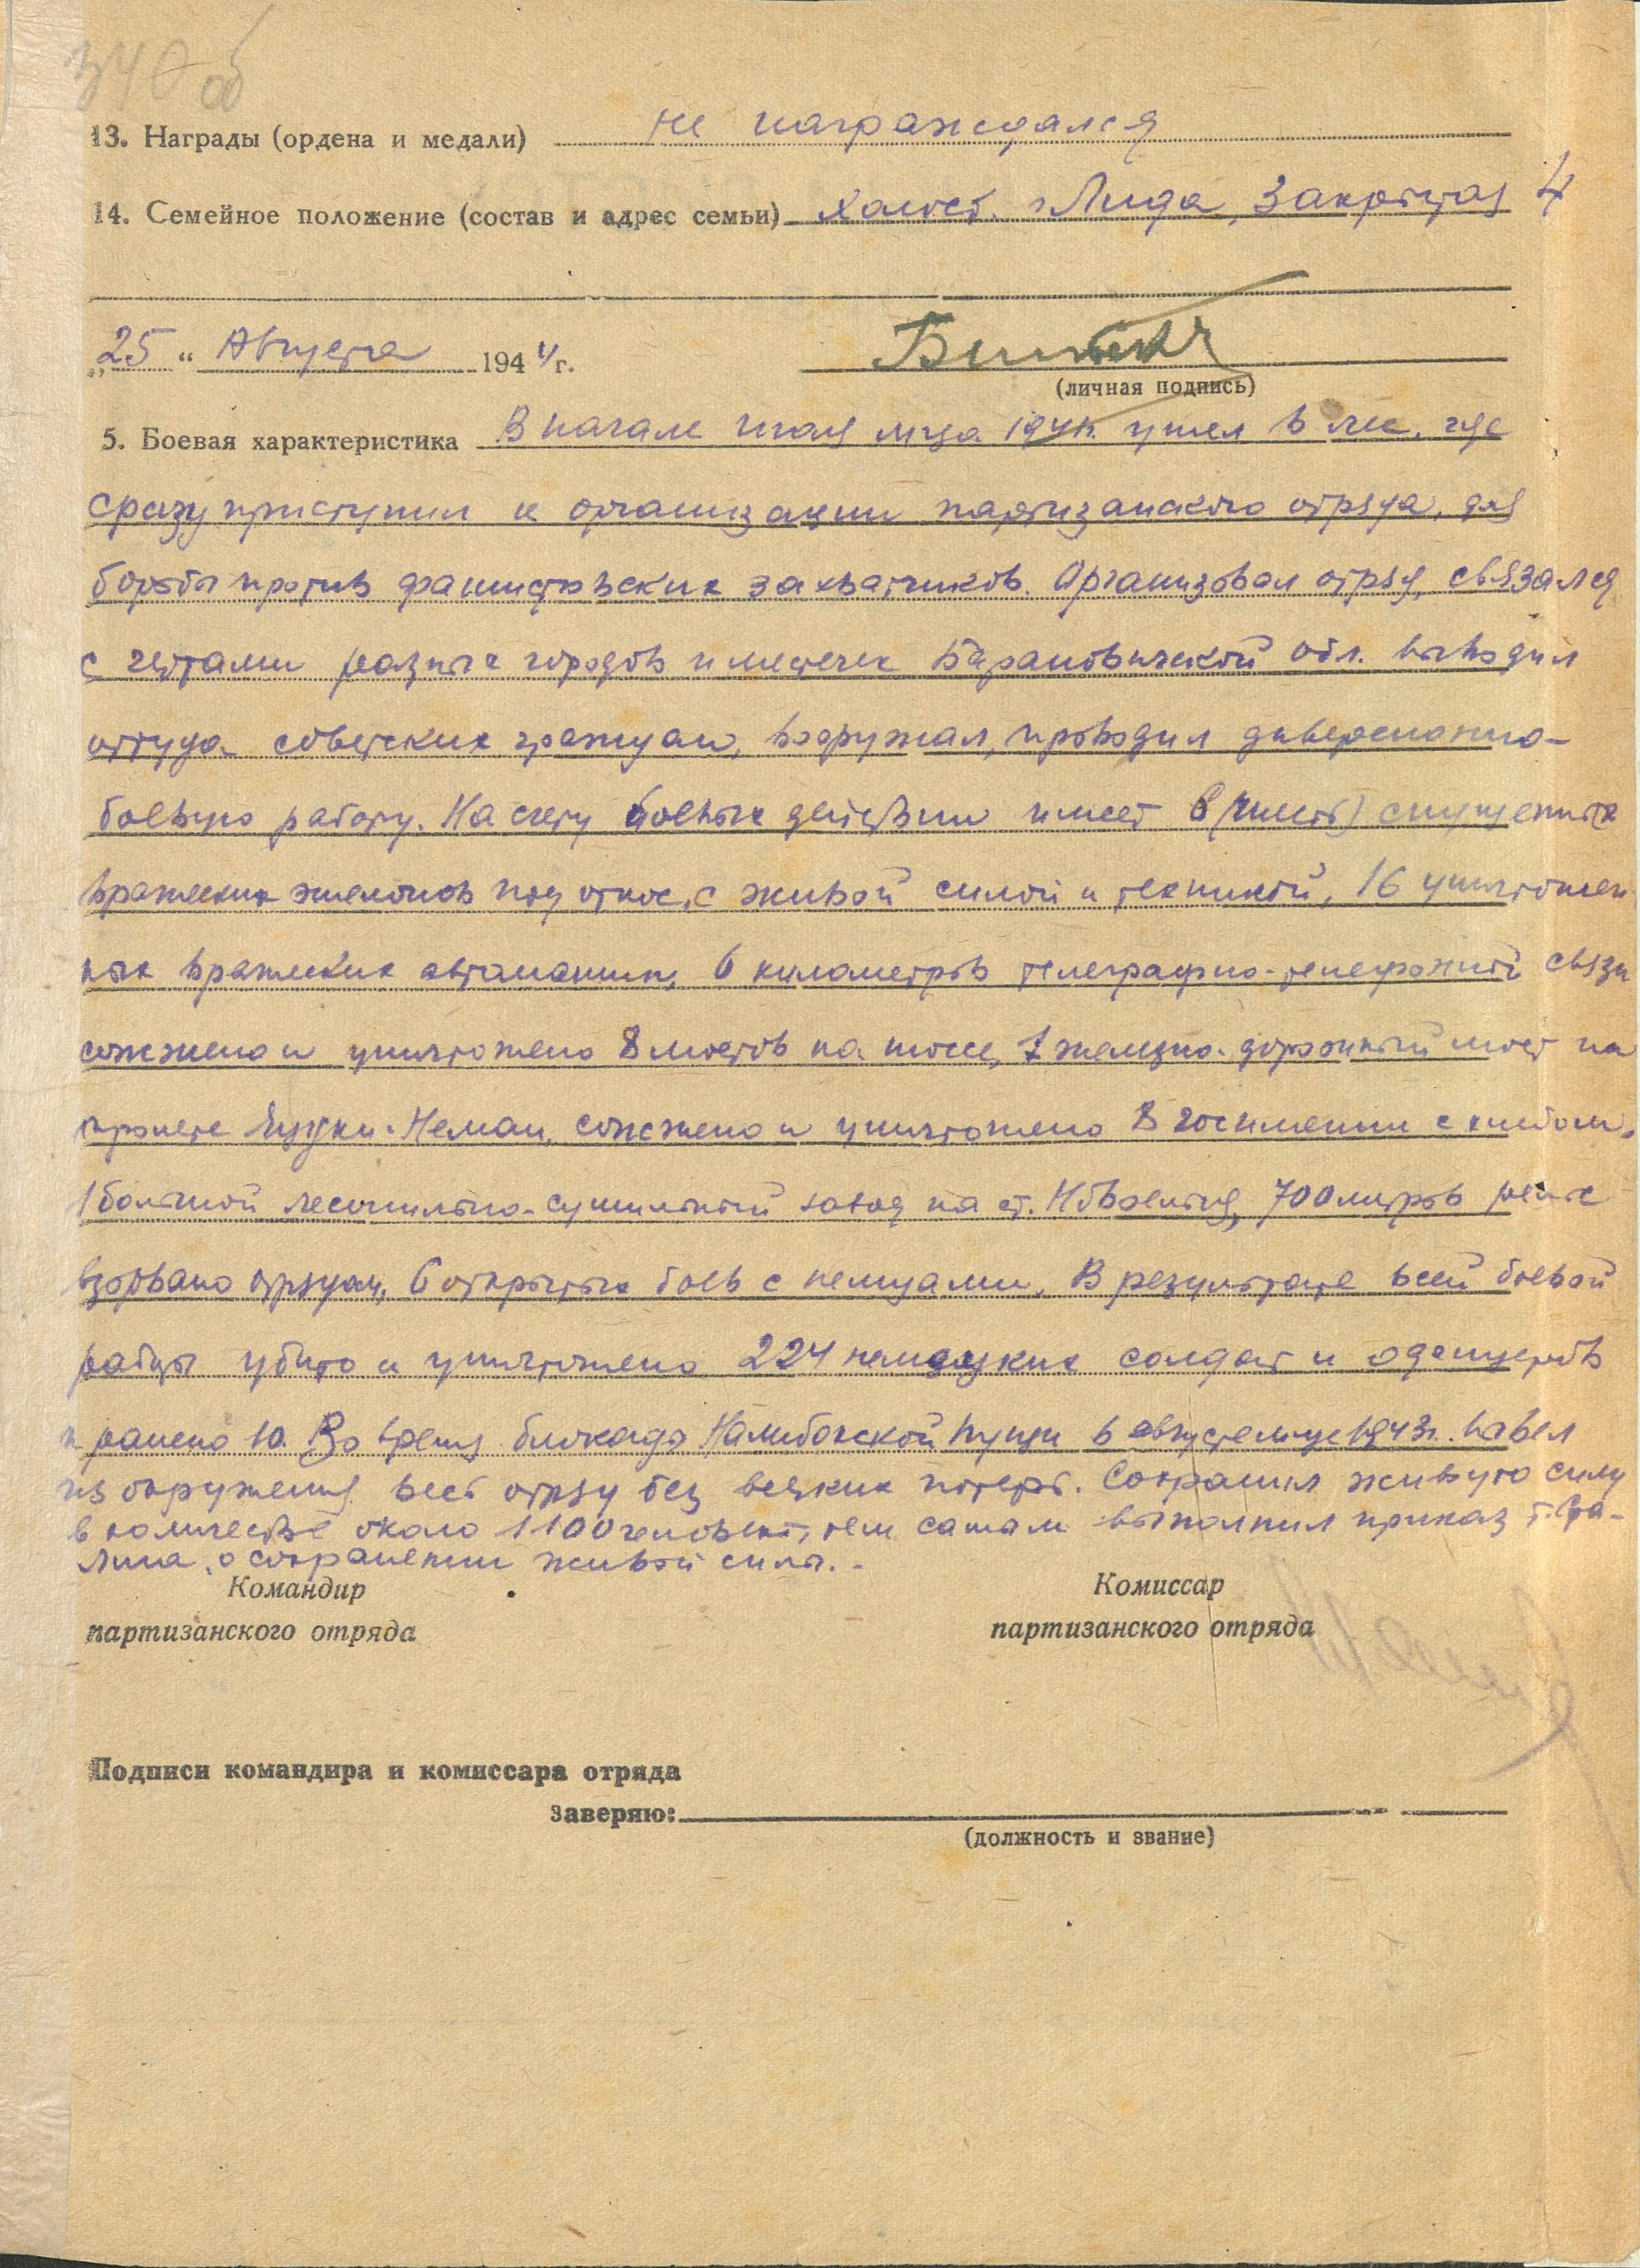 340 об
13. Награды (ордена и медали) не награждался
14. Семейное положение (состав и адрес семьи) холост. г Лида, Закрытая 4
„25“ Августа 1944 г.
(личная подпись)
5. Боевая характеристика В начале июля м-ца 1941г. ушел в лес, где
сразу приступил к организации партизанского отряда, для
борьбы против фашистовских захватчиков. Организовал отряд, связался
с гетами разных городов и местечек Барановичской обл. выводил
оттуда советских граждан, вооружал, проводил диверсионно-
боевую работу. На счету боевых действий имеет 6 (шесть) спущенных
вражеских эшелонов под откос, с живой силой и техникой, 16 уничтожен-
ных вражеских автомашин, 6 километров телеграфно-телефонной связи
сожжено и уничтожено 8 мостов на шоссе, 1 железно-дорожный мост на
пролете Яцуки-Неман, сожжено и уничтожено 8 госимений с хлебом,
1 большой лесопильно-сушильный завод на ст. Новоельня, 700 метров рельс
взорвано отрядом, 6 открытых боев с немцами. В результате всей боевой
работы убито и уничтожено 224 немецких солдат и офицеров
и ранено 10. Во время блокады Налибокской пущи в августе м-це 1943г. вывел
из окружения весь отряд без всяких потерь. Сохранил живую силу
в количестве около 1100 человек, тем самым выполнил приказ т. Ста-
лина, о сохранении живой силы.-
Командир Комиссар
партизанского отряда партизанского отряда
Подписи командира и комиссара отряда
заверяю:
(должность и звание)